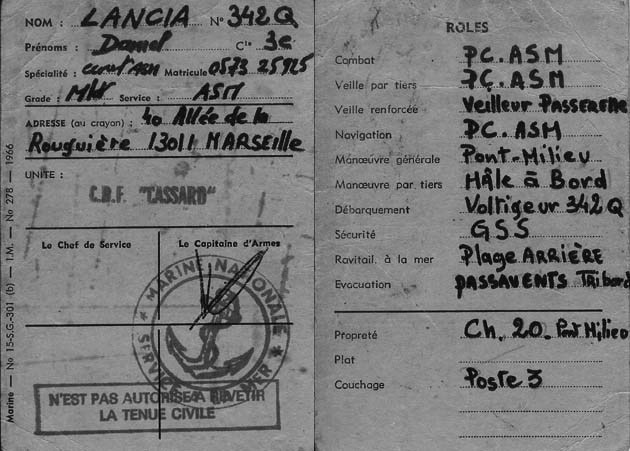 NOM : LANCIA N° 342 Q
Prénoms : Daniel Cie 3e
Spécialité : Matricule 0573 25925
Grade : Mlot Service : ASM
ADRESSE (au crayon) : 40 Allée de la
Rouguière 13011 MARSEILLE
UNITE :
"CASSARD"
Le Chef de Service Le Capitaine d'Armes
MARINE NATIONALE
SERVICE A LA MER
N'EST PAS AUTORISE A REVETIR
LA TENUE CIVILE
Marine — No 15-S.G.-301 (b) — I.M. — No 278 — 1966
ROLES
Combat PC. ASM
Veille par tiers PC. ASM
Veille renforcée Veilleur PASSERELLE
Navigation PC. ASM
Manœuvre générale Pont-Milieu
Manœuvre par tiers Mâle à Bord
Débarquement Voltigeur 342 Q
Sécurité GSS
Ravitail. à la mer Plage ARRIÈRE
Evacuation PASSAVENTS Tribord
Propreté Ch. 20. Pont Milieu
Plat
Couchage Poste 3